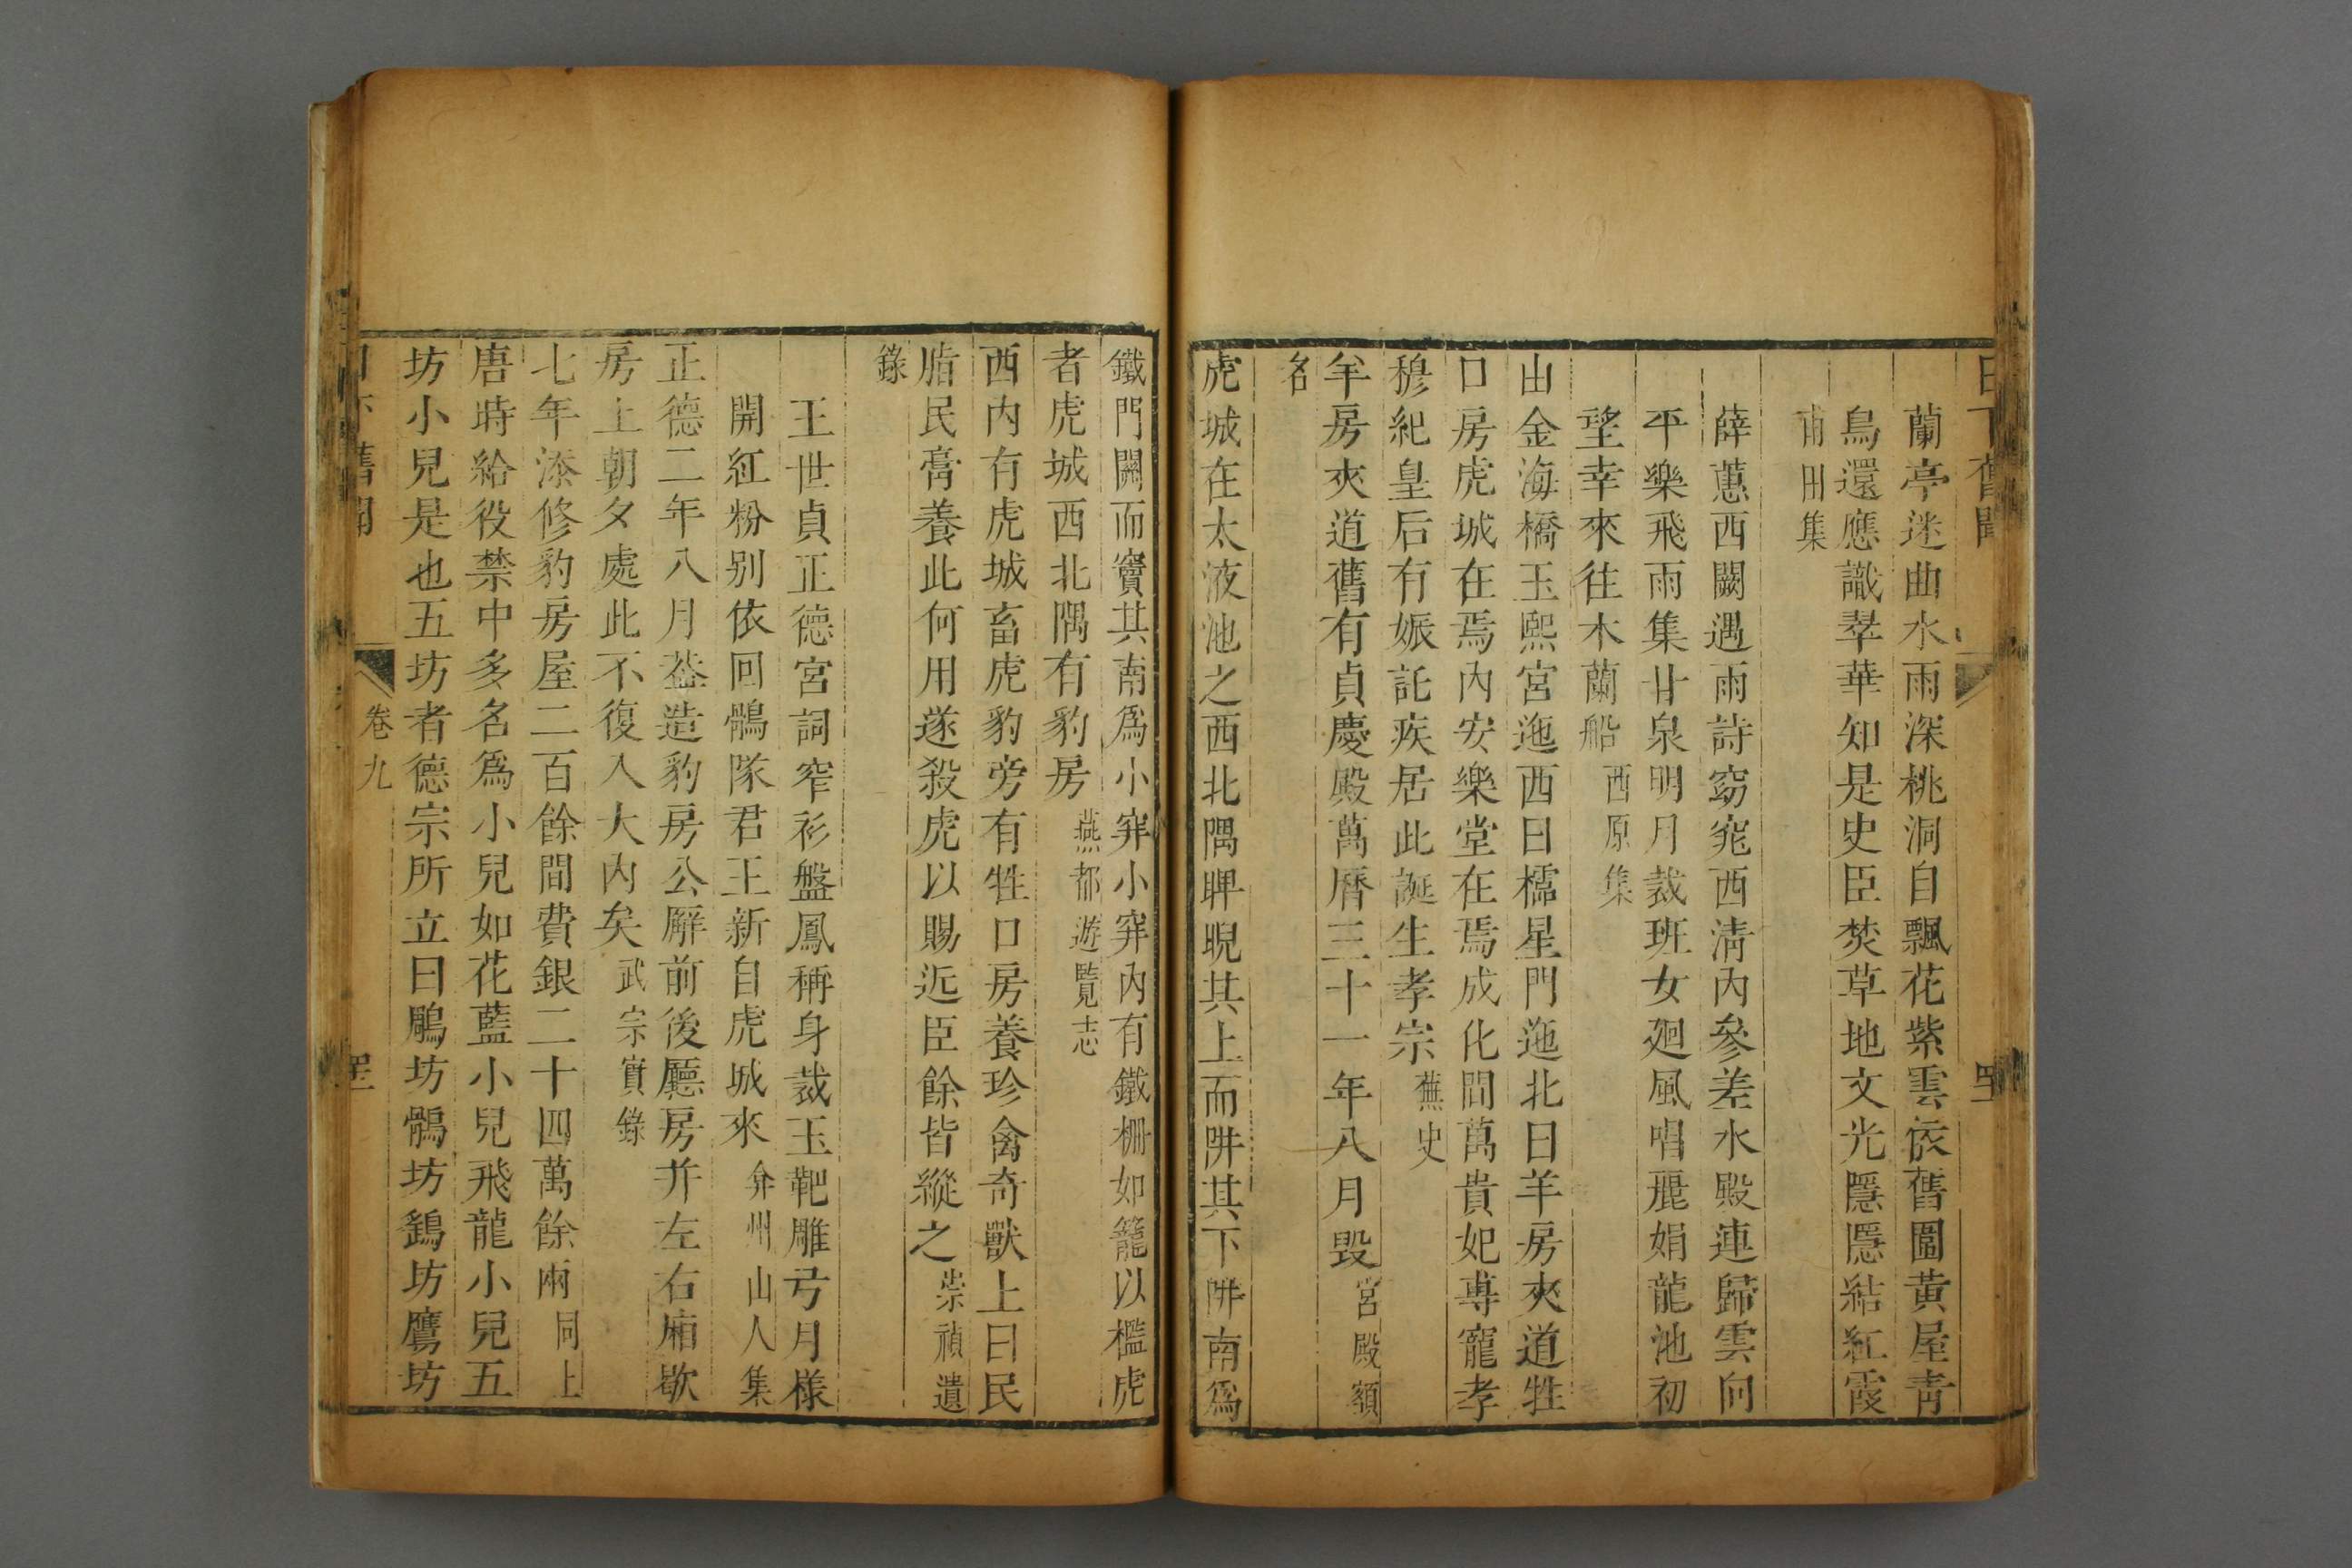 日下舊聞
蘭亭迷曲水雨深桃洞自飄花紫雲依舊圍黃屋青
鳥還應識翠華知是史臣焚草地文光隱隱結紅霞
甫田集
薛蕙西闕遇雨詩窈窕西清內參差水殿連歸雲向
平樂飛雨集甘泉明月裁班女廻風唱麗娟龍池初
望幸來往木蘭船西原集
由金海橋玉熙宮迤西曰櫺星門迤北曰羊房夾道牲
口房虎城在焉內安樂堂在焉成化間萬貴妃專寵孝
穆紀皇后有娠託疾居此誕生孝宗蕪史
羊房夾道舊有貞慶殿萬曆三十一年八月毀宮殿額
名
虎城在太液池之西北隅睥睨其上而阱其下阱南爲
鐵門闕而竇其南爲小穽小穽內有鐵柵如籠以檻虎
者虎城西北隅有豹房燕都遊覽志
西內有虎城畜虎豹旁有牲口房養珍禽奇獸上曰民
脂民膏養此何用遂殺虎以賜近臣餘皆縱之崇禎遺
錄
王世貞正德宮詞窄衫盤鳳稱身裁玉靶雕弓月樣
開紅粉別依回鶻隊君王新自虎城來弇州山人集
正德二年八月葢造豹房公廨前後廳房并左右廂歇
房上朝夕處此不復入大內矣武宗實錄
七年添修豹房屋二百餘間費銀二十四萬餘兩同上
唐時給役禁中多名爲小兒如花藍小兒飛龍小兒五
坊小兒是也五坊者德宗所立曰鵰坊鶻坊鷂坊鷹坊
日下舊聞 卷九